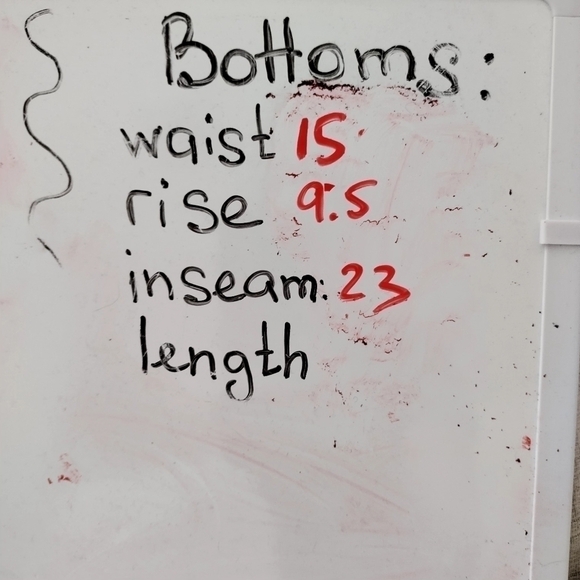 Bottoms:
waist 15
rise 9.5
inseam: 23
length